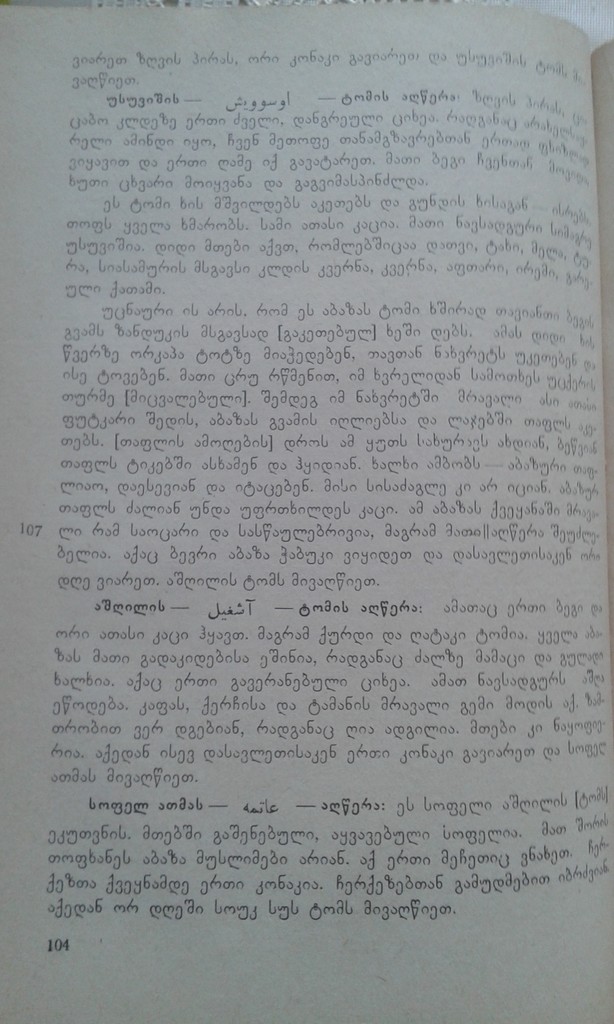 ვიარეთ ზღვის პირას, ორი კონაკი გავიარეთ და უსუვიშის ტომს მი-
ვაღწიეთ.
უსუვიშის — اوسوويش — ტომის აღწერა: ზღვის პირას, ცი-
ცაბო კლდეზე ერთი ძველი, დანგრეული ციხეა. რადგანაც არახელსაყ-
რელი ამინდი იყო, ჩვენ მეთოფე თანამგზავრებთან ერთად ფხიზლად
ვიყავით და ერთი ღამე იქ გავატარეთ. მათი ბეგი ჩვენთან მოვიდა
ხუთი ცხვარი მოიყვანა და გაგვიმასპინძლდა.
ეს ტომი ხის მშვილდებს აკეთებს და გუნდის ხისაგან — ისრებს.
თოფს ყველა ხმარობს. სამი ათასი კაცია. მათი ნავსადგური სიმაგრე
უსუვიშია. დიდი მთები აქვთ, რომლებშიცაა დათვი, ტახი, მელა, ტუ-
რა, სიასამურის მსგავსი კლდის კვერნა, კვერნა, აფთარი, ირემი, გარე-
ული ქათამი.
უცნაური ის არის, რომ ეს აბაზას ტომი ხშირად თავიანთი ბეგის
გვამს ზანდუკის მსგავსად [გაკეთებულ] ხეში დებს. ამას დიდი ხის
წვერზე ორკაპა ტოტზე მიაჰედებენ, თავთან ნახვრეტს უკეთებენ და
ისე ტოვებენ. მათი ცრუ რწმენით, იმ ხვრელიდან სამოთხეს უცქერის
თურმე [მიცვალებული]. შემდეგ იმ ნახვრეტში მრავალი ასი ათასი
ფუტკარი შედის, აბაზას გვამის იღლიებსა და ლაჯებში თაფლს აკე-
თებს. [თაფლის ამოღების] დროს ამ ყუთს სახურავს ახდიან, ბეწვიან
თაფლს ტიკებში ასხამენ და ჰყიდიან. ხალხი ამბობს — აბაზური თაფ-
ლიაო, დაესევიან და იტაცებენ. მისი სისაძაგლე კი არ იციან. აბაზურ
თაფლს ძალიან უნდა უფრთხილდეს კაცი. ამ აბაზას ქვეყანაში მრავა-
107 ლი რამ საოცარი და სასწაულებრივია, მაგრამ მათი||აღწერა შეუძლე-
ბელია. აქაც ბევრი აბაზა ჭაბუკი ვიყიდეთ და დასავლეთისაკენ ორი
დღე ვიარეთ. აშღილის ტომს მივაღწიეთ.
აშღილის — آشغيل — ტომის აღწერა: ამათაც ერთი ბეგი და
ორი ათასი კაცი ჰყავთ. მაგრამ ქურდი და ღატაკი ტომია. ყველა აბა-
ზას მათი გადაკიდებისა ეშინია, რადგანაც ძალზე მამაცი და გულადი
ხალხია. აქაც ერთი გავერანებული ციხეა. ამათ ნავსადგურს აშღა
ეწოდება. კაფას, ქერჩისა და ტამანის მრავალი გემი მოდის აქ. ზამ-
თრობით ვერ დგებიან, რადგანაც ღია ადგილია. მთები კი ნაყოფიე-
რია. აქედან ისევ დასავლეთისაკენ ერთი კონაკი გავიარეთ და სოფელ
ათმას მივაღწიეთ.
სოფელ ათმას — عاتمه — აღწერა: ეს სოფელი აშღილის [ტომს]
ეკუთვნის. მთებში გაშენებული, აყვავებული სოფელია. მათ შორის
თოფხანეს აბაზა მუსლიმები არიან. აქ ერთი მეჩეთიც ვნახეთ. ჩერ-
ქეზთა ქვეყნამდე ერთი კონაკია. ჩერქეზებთან გამუდმებით იბრძვიან.
აქედან ორ დღეში სოუკ სუს ტომს მივაღწიეთ.
104